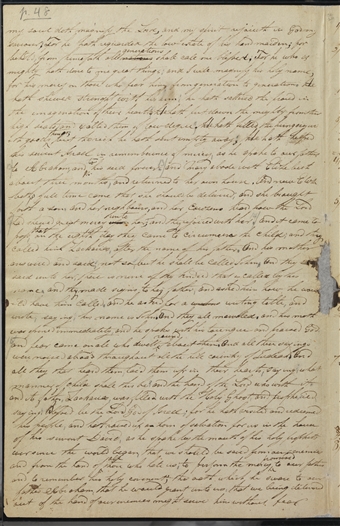 p. 48
my soul doth magnify the Lord, and my spirit rejoiceth in God my
Saviour; for he hath regarded the low estate of his hand maiden; for
behold, from henceforth all generations shall call me blessed; For he who is
mighty hath done to me great things; and I will magnify his holy name,
for his mercy on those who fear him from generation to generation he
hath shewed strength with his arm; he hath scattered the proud in
the imagination of their hearts; he hath put down the mighty from their
high seats, and exalted them of low degree; He hath filled the hungry with
good things; but the rich he hath sent empty away; he hath helped
his servant Israel in remembrance of mercy, as he spake to our fathers
to Abraham, and to his seed forever, And Mary abode with Elizabeth
about three months, and returned to her own house. And now Elizabeth's
full time came that she should be delivered, and she brought
forth a son, and her neighbors, and her cousins heard how the Lord
had shewed great mercy unto her; and they rejoiced with her; and it came to
pass that on the eighth day they came to circumcise the child; and they
called him Zacharias, after the name of his father, And his mother
answered and said, not so; but he shall be called John, And they
said unto her, there is none of thy kindred that is called by this
name, and they made signs to his father, and asked him how he would
have him called, and he asked for a writing table, and
wrote, saying, his name is John, And they all marvelled, and his mouth
was opened immediately, and he spake with his tongue and praised God,
and fear came on all who dwelt round about them, And all these sayings
were noised abroad throughout all the hill country of Judea; and
all they that heard them laid them up in their hearts, saying, what
manner of child shall this be? and the hand of the Lord was with it
and his father Zacharias, was filled with the Holy Ghost and prophesied
saying Blessed be the Lord God of Israel; for he hath visited and redeemed
his people, and hath raised up an horn of salvation for us in the house
of his servant David, as he spake by the mouth of his holy prophets
ever since the world began, that we should be saved from our enemies
and from the hand of all those who hate us; to perform the mercy promised to our fathers
and to remember his holy covenant; the oath which he swore to our
father Abraham, that he would grant unto us, that we being delivered
out of the hand of our enemies might serve him without fear